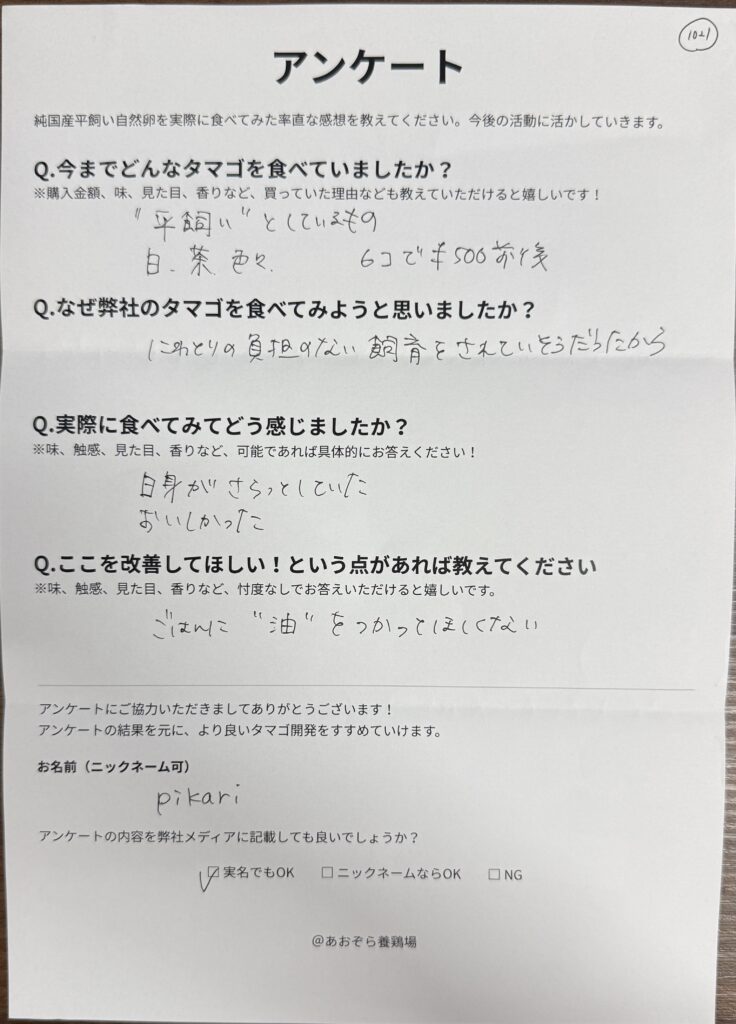 1021
アンケート
純国産平飼い自然卵を実際に食べてみた率直な感想を教えてください。今後の活動に活かしていきます。
Q.今までどんなタマゴを食べていましたか？
※購入金額、味、見た目、香りなど、買っていた理由なども教えていただけると嬉しいです！
"平飼い"としているもの
白、茶、色々 6コで¥500前後
Q.なぜ弊社のタマゴを食べてみようと思いましたか？
にわとりの負担のない飼育をされていそうだったから
Q.実際に食べてみてどう感じましたか？
※味、触感、見た目、香りなど、可能であれば具体的にお答えください！
白身がさらっとしていた
おいしかった
Q.ここを改善してほしい！という点があれば教えてください
※味、触感、見た目、香りなど、忖度なしでお答えいただけると嬉しいです。
ごはんに"油"をつかってほしくない
アンケートにご協力いただきましてありがとうございます！
アンケートの結果を元に、より良いタマゴ開発をすすめていけます。
お名前（ニックネーム可）
pikari
アンケートの内容を弊社メディアに記載しても良いでしょうか？
☑実名でもOK □ニックネームならOK □NG
@あおぞら養鶏場